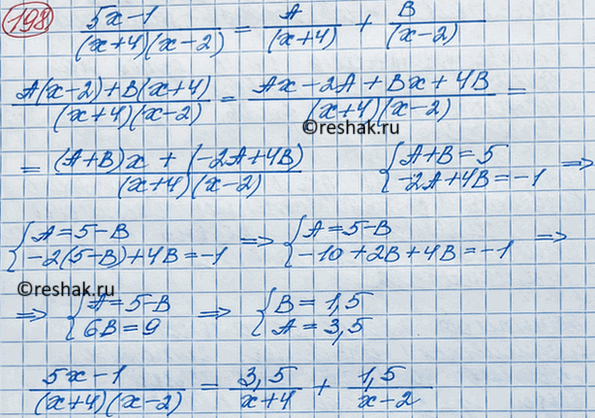 198 (5x-1)/((x+4)(x-2)) = A/(x+4) + B/(x-2)
(A(x-2)+B(x+4))/((x+4)(x-2)) = (Ax-2A+Bx+4B)/((x+4)(x-2)) =
©reshak.ru
= ((A+B)x + (-2A+4B))/((x+4)(x-2)) { A+B=5 ; -2A+4B=-1 ⇒
{ A=5-B ; -2(5-B)+4B=-1 ⇒ { A=5-B ; -10+2B+4B=-1 ⇒
©reshak.ru
⇒ { A=5-B ; 6B=9 ⇒ { B=1,5 ; A=3,5
(5x-1)/((x+4)(x-2)) = 3,5/(x+4) + 1,5/(x-2)